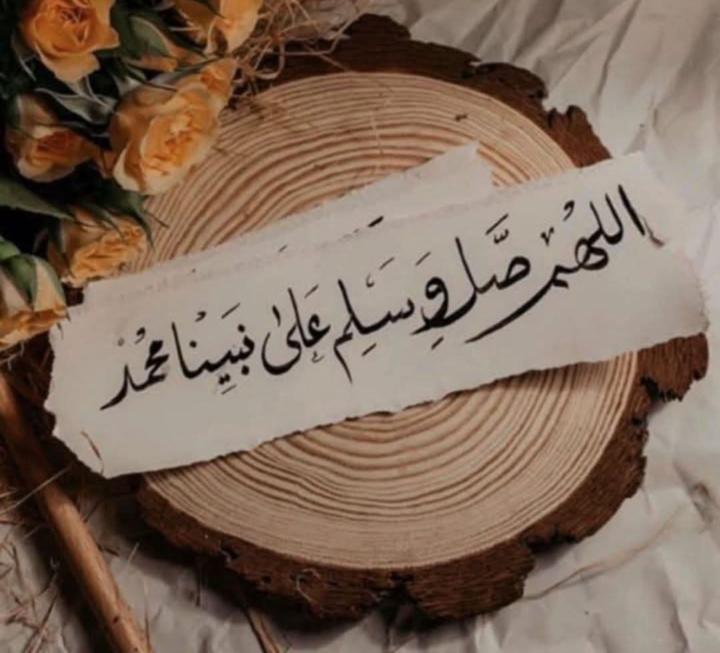 اللهم صَل وَسَلِم عَلىٰ نبَيِنا محمد